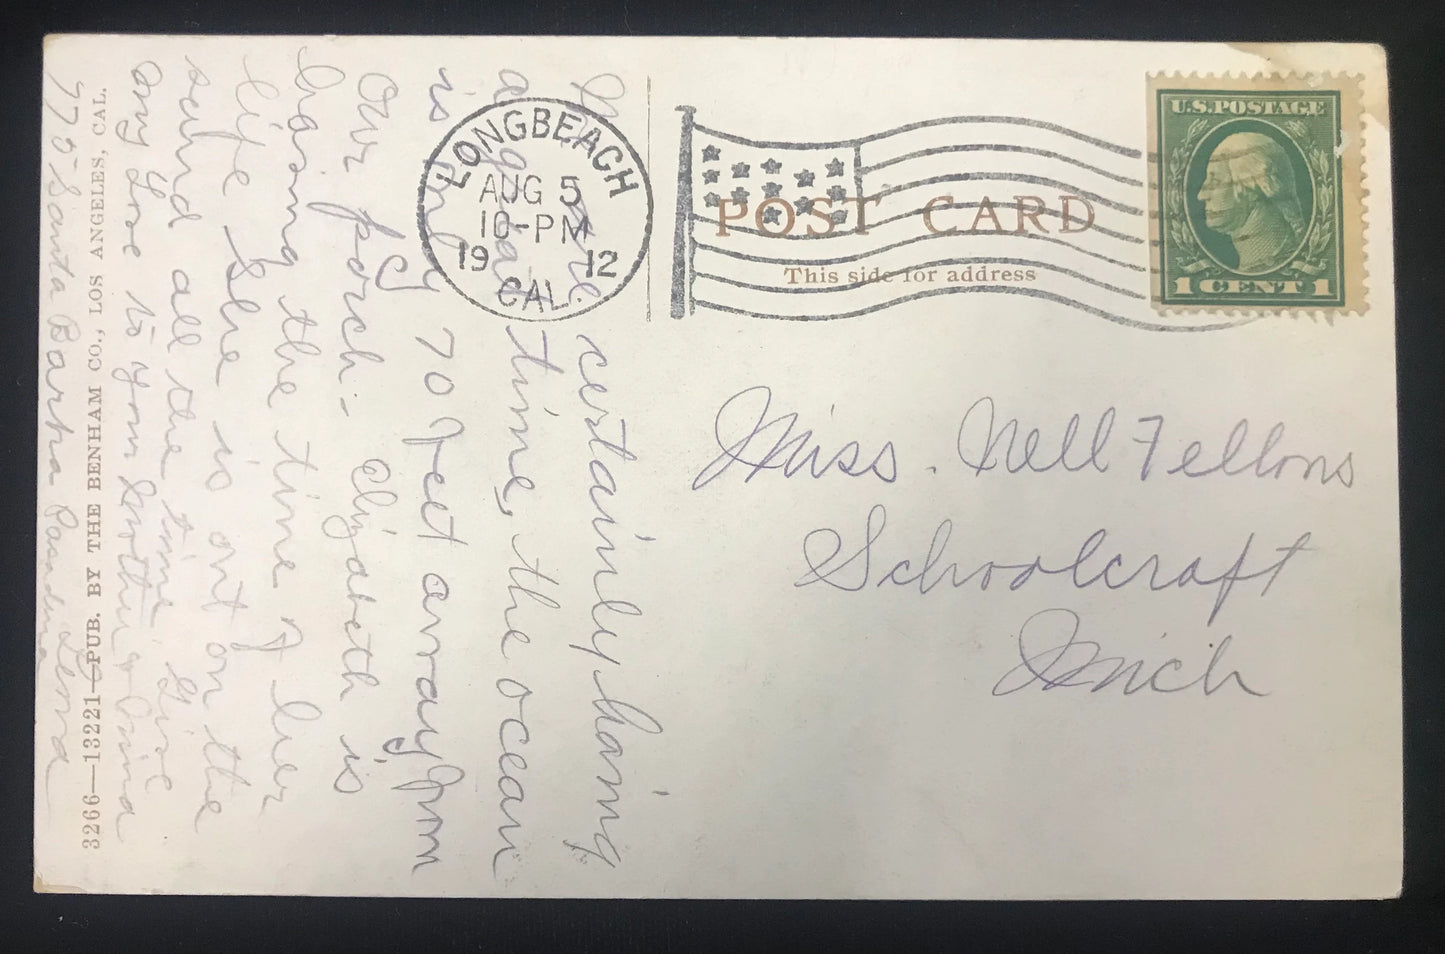 We are certainly having
a great time, the ocean
is only 70 feet away from
our porch. Elizabeth is
having the time of her
life She is out on the
sand all the time. Give
my love to your Mother &
775 Santa Barbara Pasadena
3266—13221—PUB. BY THE BENHAM CO., LOS ANGELES, CAL.
LONGBEACH
AUG 5
10-PM
1912
CAL.
POST CARD
This side for address
U.S. POSTAGE
1 CENT 1
Miss. Nell Fellows
Schoolcraft
Mich